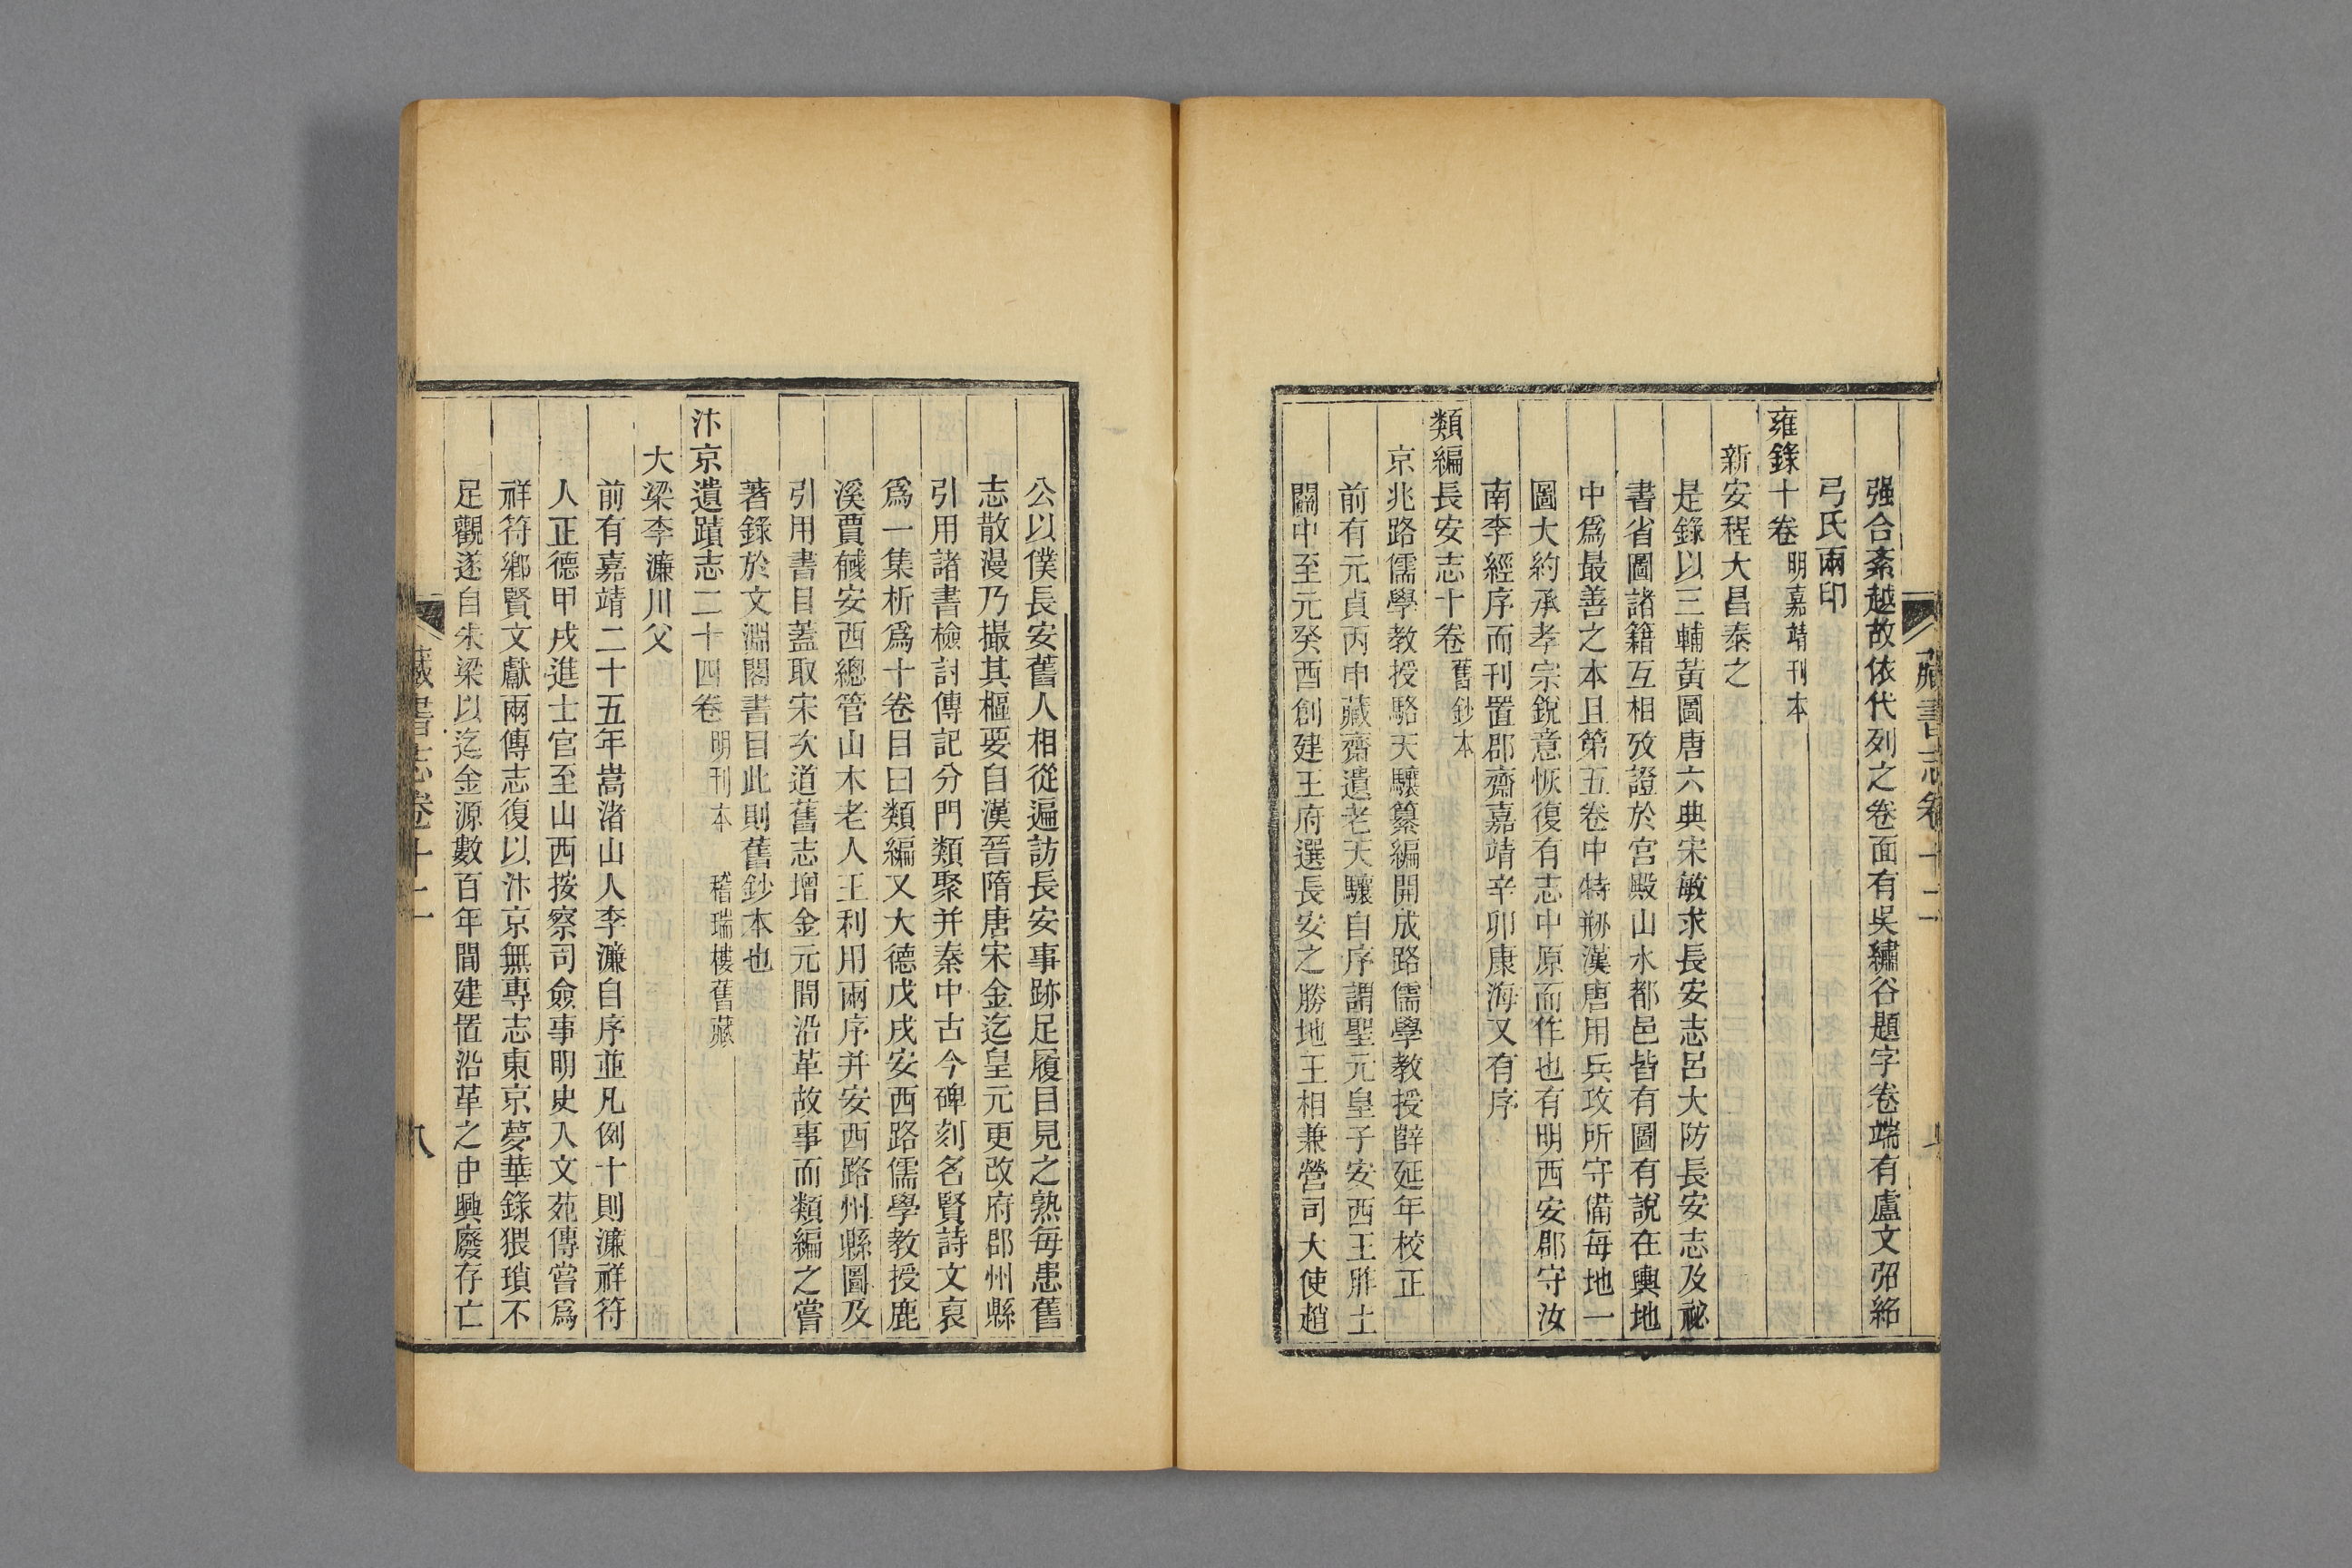 强合紊越故依代列之卷面有吳繡谷題字卷端有盧文弨紹
弓氏兩印
雍錄十卷 明嘉靖刊本
新安程大昌泰之
是錄以三輔黃圖唐六典宋敏求長安志呂大防長安志及祕
書省圖諸籍互相攷證於宮殿山水都邑皆有圖有說在輿地
中爲最善之本且第五卷中特剙漢唐用兵攻所守備每地一
圖大約承孝宗銳意恢復有志中原而作也有明西安郡守汝
南李經序而刊置郡齋嘉靖辛卯康海又有序
類編長安志十卷 舊鈔本
京兆路儒學教授駱天驤纂編開成路儒學教授薛延年校正
前有元貞丙申藏齋遺老天驤自序謂聖元皇子安西王胙土
關中至元癸酉創建王府選長安之勝地王相兼營司大使趙
藏書志卷十二
公以僕長安舊人相從遍訪長安事跡足履目見之熟每患舊
志散漫乃撮其樞要自漢晉隋唐宋金迄皇元更改府郡州縣
引用諸書檢討傳記分門類聚并秦中古今碑刻名賢詩文裒
爲一集析爲十卷目曰類編又大德戊戌安西路儒學教授鹿
溪賈戫安西總管山木老人王利用兩序并安西路州縣圖及
引用書目蓋取宋次道舊志增金元間沿革故事而類編之嘗
著錄於文淵閣書目此則舊鈔本也
汴京遺蹟志二十四卷 明刊本 稽瑞樓舊藏
大梁李濂川父
前有嘉靖二十五年嵩渚山人李濂自序並凡例十則濂祥符
人正德甲戌進士官至山西按察司僉事明史入文苑傳嘗爲
祥符鄉賢文獻兩傳志復以汴京無專志東京夢華錄猥瑣不
足觀遂自朱梁以迄金源數百年間建置沿革之由興廢存亡
藏書志卷十二
八